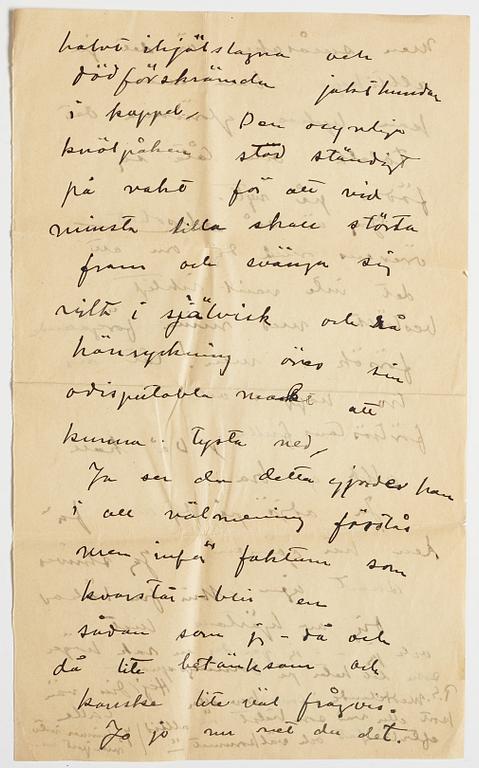 halvt ihjälslagna och
dödförskrämda jakthundar
i koppel. Den osynliga
knölpåken stod ständigt
på vakt för att vid
minsta lilla skall störta
fram och svänga sig
vilt i självisk och rå
hänryckning över sin
odisputabla makt att
kunna tysta ned,
Ja ser du detta gjorde han
i all välmening förstås
men inför faktum som
kvarstår blir en
sådan som jag då och
då lite betänksam och
kanske lite väl frågvis.
Jo jo nu vet du det.